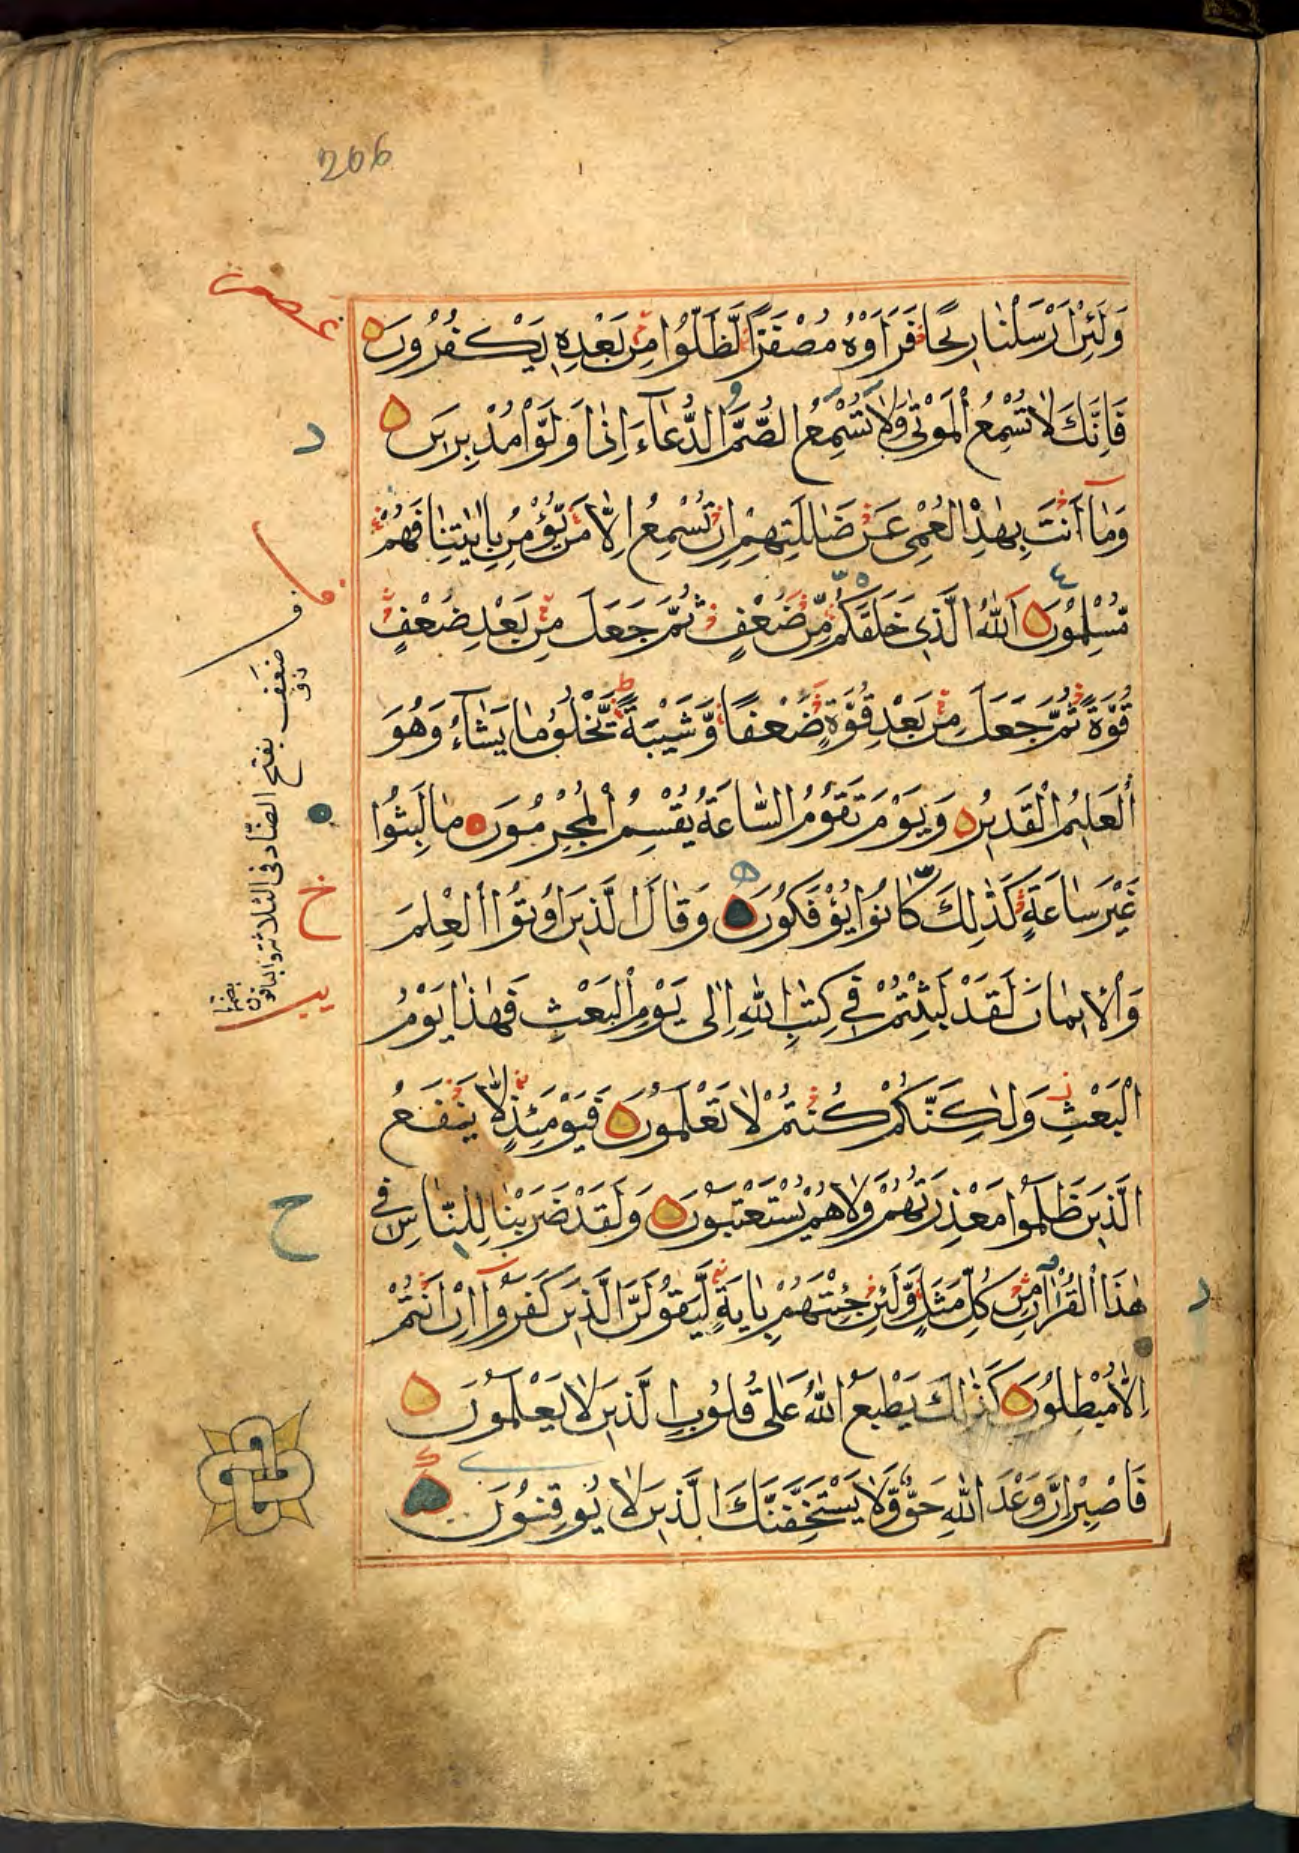 206
وَلَئِنْ اَرْسَلْنَا رِيحًا فَرَاَوْهُ مُصْفَرًّا لَّظَلُّوا مِنْ بَعْدِهٖ يَكْفُرُونَ
فَاِنَّكَ لَا تُسْمِعُ الْمَوْتٰى وَلَا تُسْمِعُ الصُّمَّ الدُّعَاۤءَ اِذَا وَلَّوْا مُدْبِرِينَ
وَمَاۤ اَنْتَ بِهٰدِ الْعُمْىِ عَنْ ضَلٰلَتِهِمْ اِنْ تُسْمِعُ اِلَّا مَنْ يُّؤْمِنُ بِاٰيٰتِنَا فَهُمْ
مُّسْلِمُونَ اَللّٰهُ الَّذِى خَلَقَكُمْ مِّنْ ضُعْفٍ ثُمَّ جَعَلَ مِنْ بَعْدِ ضُعْفٍ
قُوَّةً ثُمَّ جَعَلَ مِنْ بَعْدِ قُوَّةٍ ضُعْفًا وَّشَيْبَةً يَّخْلُقُ مَا يَشَاۤءُ وَهُوَ
الْعَلِيمُ الْقَدِيرُ وَيَوْمَ تَقُومُ السَّاعَةُ يُقْسِمُ الْمُجْرِمُونَ مَا لَبِثُوا
غَيْرَ سَاعَةٍ كَذٰلِكَ كَانُوا يُؤْفَكُونَ وَقَالَ الَّذِينَ اُوتُوا الْعِلْمَ
وَالْاِيمَانَ لَقَدْ لَبِثْتُمْ فِى كِتٰبِ اللّٰهِ اِلٰى يَوْمِ الْبَعْثِ فَهٰذَا يَوْمُ
الْبَعْثِ وَلٰكِنَّكُمْ كُنْتُمْ لَا تَعْلَمُونَ فَيَوْمَئِذٍ لَّا يَنْفَعُ
الَّذِينَ ظَلَمُوا مَعْذِرَتُهُمْ وَلَا هُمْ يُسْتَعْتَبُونَ وَلَقَدْ ضَرَبْنَا لِلنَّاسِ فِى
هٰذَا الْقُرْاٰنِ مِنْ كُلِّ مَثَلٍ وَّلَئِنْ جِئْتَهُمْ بِاٰيَةٍ لَّيَقُولَنَّ الَّذِينَ كَفَرُوۤا اِنْ اَنْتُمْ
اِلَّا مُبْطِلُونَ كَذٰلِكَ يَطْبَعُ اللّٰهُ عَلٰى قُلُوبِ الَّذِينَ لَا يَعْلَمُونَ
فَاصْبِرْ اِنَّ وَعْدَ اللّٰهِ حَقٌّ وَّلَا يَسْتَخِفَّنَّكَ الَّذِينَ لَا يُوقِنُونَ
ضعف بفتح الضاد فى الثلاثة والباقون بضمها